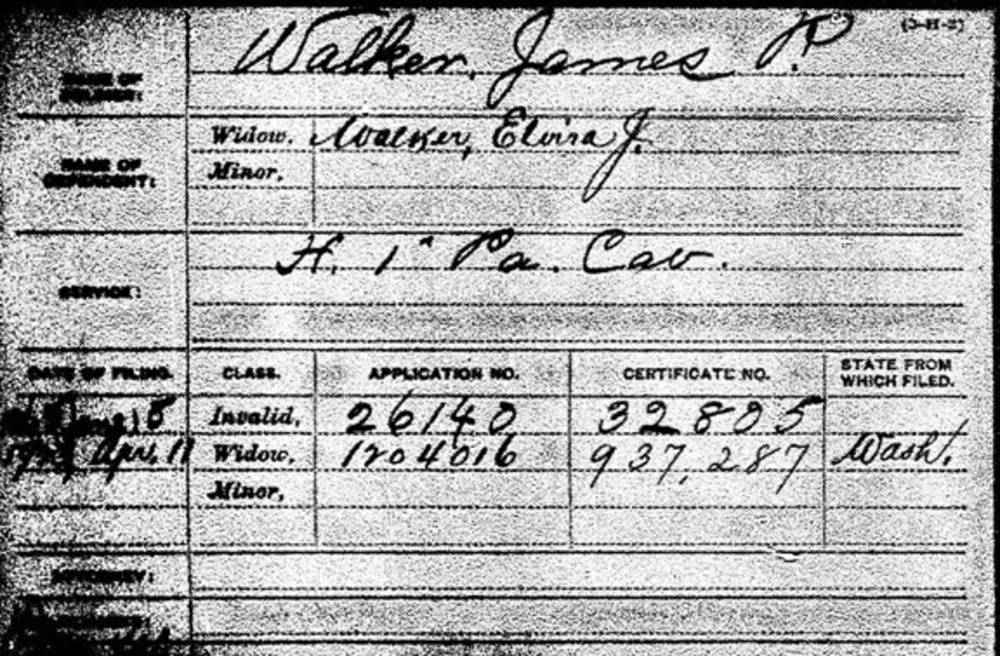 (3-H-2)
NAME OF SOLDIER: Walker, James P.
NAME OF DEPENDENT: Widow, Walker, Elvira J.
Minor,
SERVICE: H. 1" Pa. Cav.
DATE OF FILING. CLASS. APPLICATION NO. CERTIFICATE NO. STATE FROM WHICH FILED.
Invalid, 26140 32805
Apr. 11 Widow, 1204016 937,287 Wash.
Minor,
ATTORNEY: